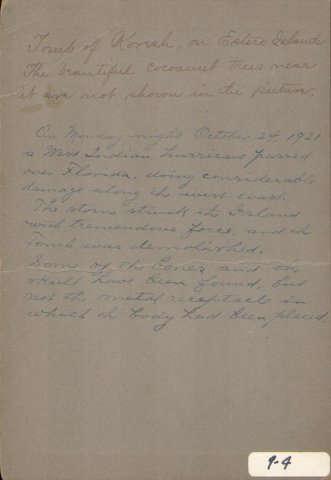 Tomb of Koresh, on Estero Island
The beautiful cocoanut trees near
it are not shown in the picture.
On Monday night October 24, 1921
a West Indian hurricane passed
over Florida, doing considerable
damage along the west coast.
The storm struck the Island
with tremendous force, and the
Tomb was demolished.
Some of the bones and the
skull have been found, but
not the metal receptacle in
which the body had been placed.
9-4